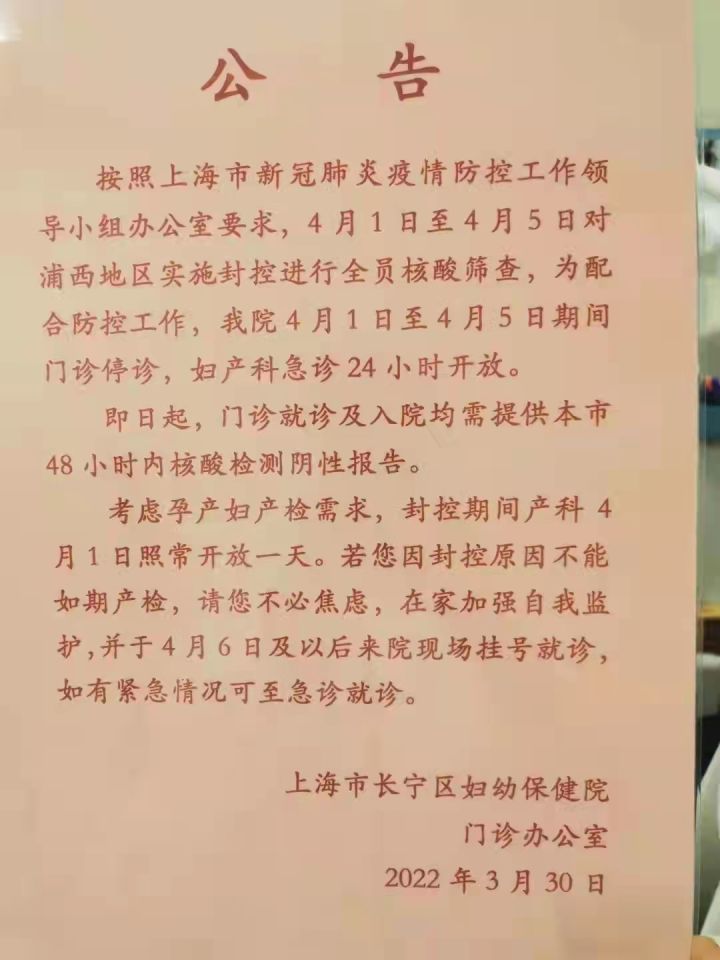 公 告
按照上海市新冠肺炎疫情防控工作领
导小组办公室要求，4 月 1 日至 4 月 5 日对
浦西地区实施封控进行全员核酸筛查，为配
合防控工作，我院 4 月 1 日至 4 月 5 日期间
门诊停诊，妇产科急诊 24 小时开放。
即日起，门诊就诊及入院均需提供本市
48 小时内核酸检测阴性报告。
考虑孕产妇产检需求，封控期间产科 4
月 1 日照常开放一天。若您因封控原因不能
如期产检，请您不必焦虑，在家加强自我监
护,并于 4 月 6 日及以后来院现场挂号就诊，
如有紧急情况可至急诊就诊。
上海市长宁区妇幼保健院
门诊办公室
2022 年 3 月 30 日